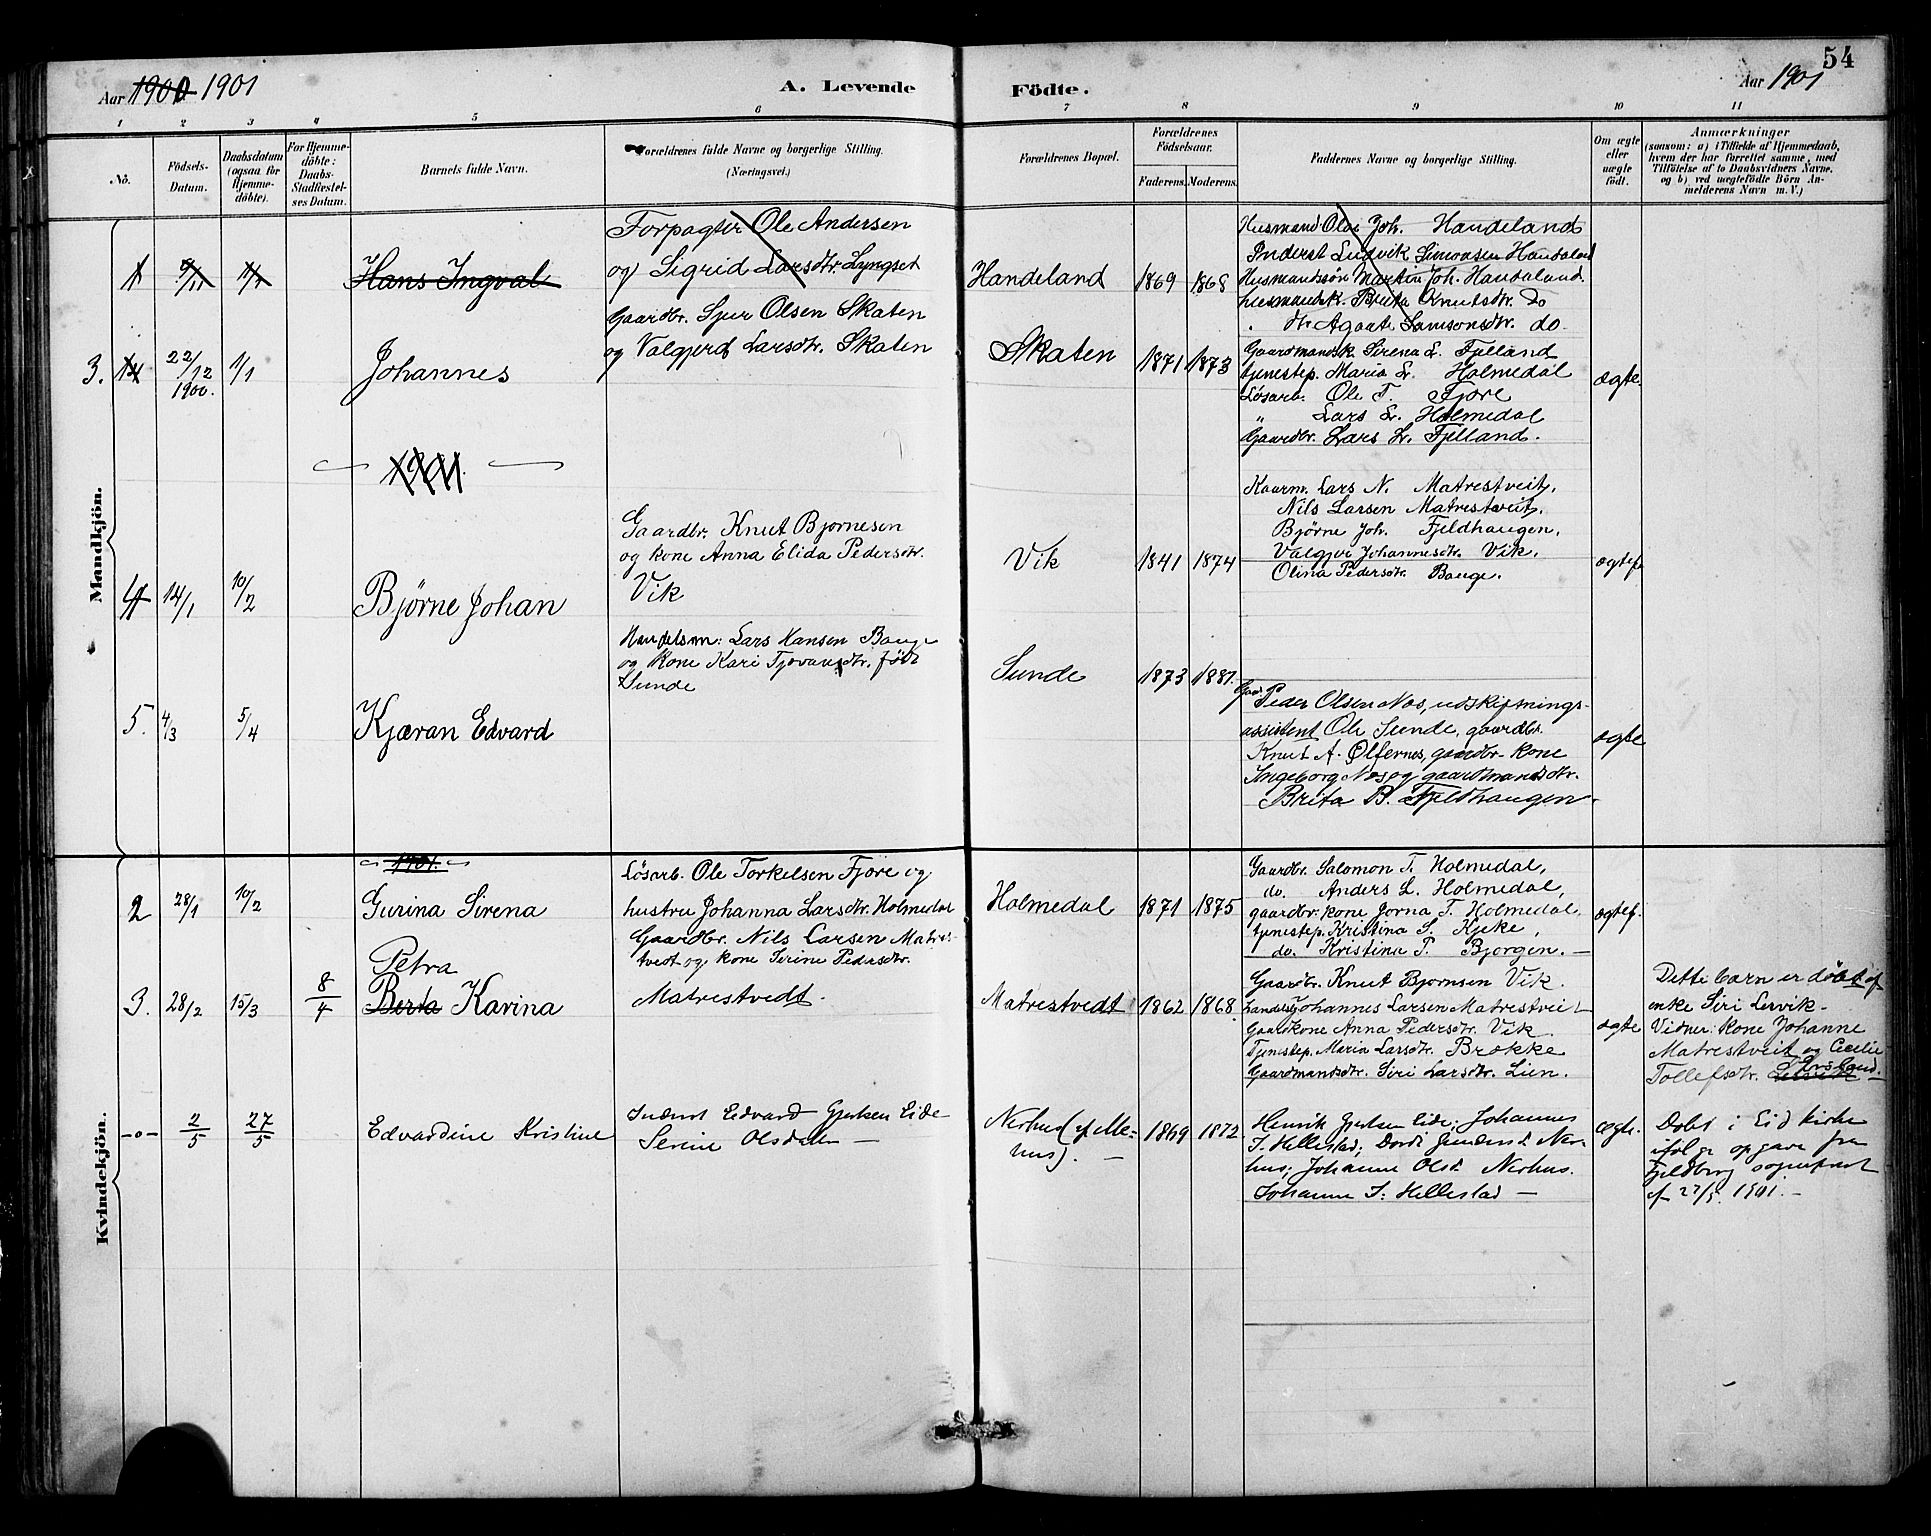 54
Aar 1900 1901
A. Levende
Födte.
Aar 1901
1 2 3 4 5 6 7 8 9 10 11
No.
Födsels-Datum.
Daabsdatum (ogsaa for Hjemme-döbte).
For Hjemme-döbte: Daabs-Stadfæstel-ses Datum.
Barnets fulde Navn.
Forældrenes fulde Navne og borgerlige Stilling. (Næringsvei.)
Forældrenes Bopæl.
Forældrenes Födselsaar.
Faderens. Moderens.
Faddernes Navne og borgerlige Stilling.
Om ægte eller uægte födt.
Anmærkninger
(saasom: a) i Tilfælde af Hjemmedaab,
hvem der har forrettet samme, med
Tilföielse af to Daabsvidners Navne.
og b) ved uægtefödte Börn An-
melderens Navn m. V.)
Mandkjön.
Hans Ingval
Forpagter Ole Andersen
og Sigrid Larsdtr. Lyngset
Handeland
1869 1868
Husmand Olai Joh. Handeland
Inderst Ludvik Simonsen Handaland
Husmandssön Martin Joh. Handaland.
husmandsk. Brita Knutsdtr. do
dtr. Agaate Samsonsdtr. do.
3. 14
22/12 1900.
1/1
Johannes
Gaardbr. Sjur Olsen Skaten
og Valgjerd Larsdtr. Skaten
Skaten
1871 1873
Gaardmandsk. Sirena L. Fjelland
tjenestep. Maria L. Holmedal
Løsarb. Ole T. Fjore
" Lars L. Holmedal
Gaardbr. Lars L. Fjelland.
ægte.
1901.
4
14/1
10/2
Bjørne Johan
Gaardbr. Knut Bjornesen
og kone Anna Elida Pedersdtr.
Vik
Vik
1841 1874
Kaarm. Lars N. Matrestveit,
Nils Larsen Matrestveit,
Bjørne Joh. Fjeldhaugen,
Valgjer Johannesdtr. Vik,
Olina Pedersdtr. Bauge.
ægtef.
5.
4/3
5/4
Kjæran Edvard
Handelsm: Lars Hansen Bauge
og kone Kari Tjeransdtr. født
Sunde
Sunde
1873 1881.
Gaardbr. Peder Olsen Næs, udskiftnings-
assistent Ole Sunde, gaardbr.
Knut A. Ølfernes, gaardbr. kone
Ingeborg Næs og gaardmandsdtr.
Brita B. Fjeldhaugen.
ægte
Kvindekjön.
1901.
2
28/1
10/2
Gurina Sirena
Løsarb. Ole Torkelsen Fjore og
hustru Johanna Larsdtr. Holmedal
Holmedal
1871 1875
Gaardbr. Salomon T. Holmedal,
do. Anders L. Holmedal,
gaardbr. kone Jorna T. Holmedal,
tjenestep. Kristina S. Kjeke,
do. Kristina P. Bjorgen. —
ægtef.
3.
28/2
15/3
8/4
Petra
Berta Karina
Gaardbr. Nils Larsen Matre-
tvedt og kone Serine Pedersdtr.
Matrestvedt.
Matrestvedt
1862 1868.
Gaardbr. Knut Bjornsen Vik.
handelsm. Johannes Larsen Matrestveit
Gaardkone Anna Pedersdtr. Vik
Tjenestep. Maria Larsdtr. Brekke
Gaardmandsdtr. Siri Larsdtr. Lien.
ægte
Dette barn er døbt af
enke Siri Lervik.
Vidner: kone Johanne
Matrestveit og Cecilie
Tollefsdtr.
-o-
2/5
27/5
Edvardine Kristine
Inderst Edvard Gjertsen Eide
Serine Olsdatter —
Nerhus (
hus). —
1869 1872
Henrik Gjertsen Eide; Johannes
I. Hellestad; Dordi Ner-
hus; Johanne Olsd. Nerhus.
Johanne I. Hellestad —
ægte.
Døbt i Eid kirke
ifølge opgave fra
Fjeldberg sogneprest
af 27/5 1901. —